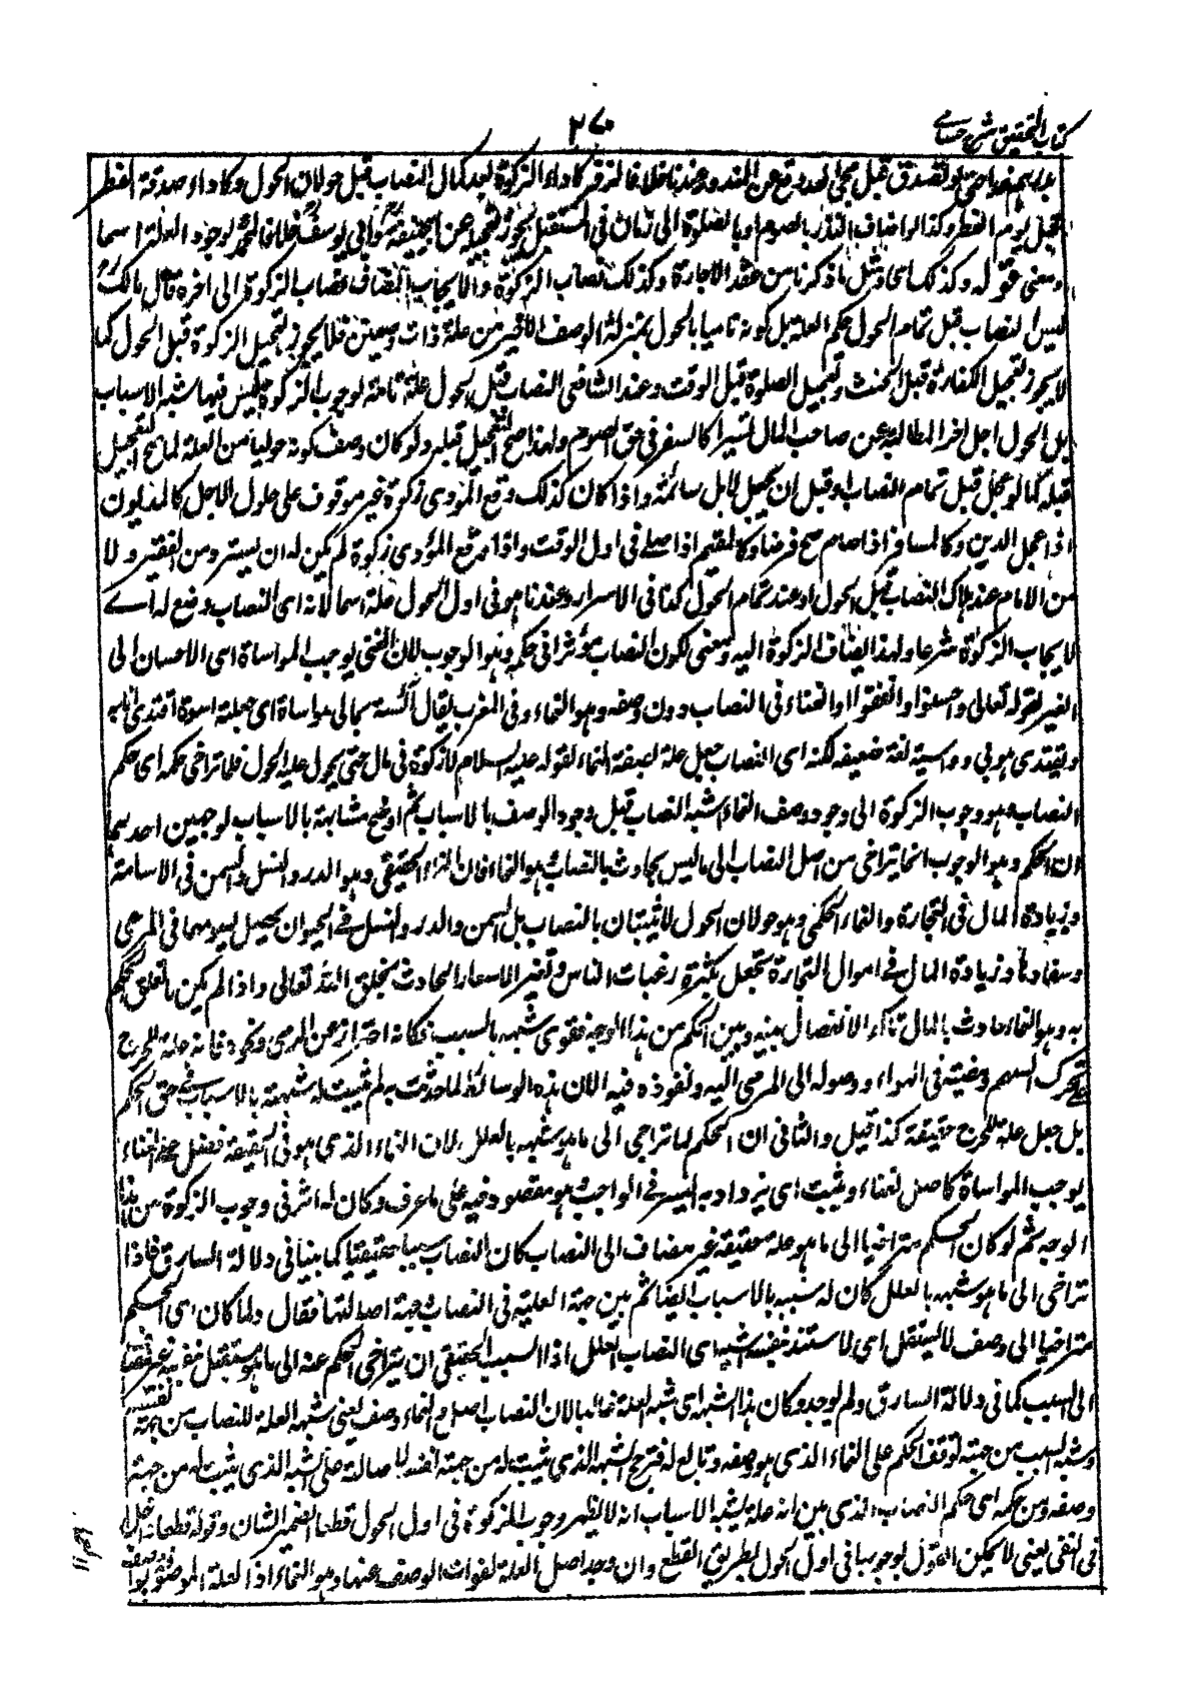 كتاب التحقيق شرح حسامي
٢٧٠
بدرهم غدا حتى لو تصدق قبل مجئ الغد وقع عن المنذور عندنا خلافا لزفر كاداء الزكوة بعد كمال النصاب قبل حولان الحول وكاداء صدقة الفطر
قبل يوم الفطر وكذا لو اضاف النذر بالصوم او بالصلوة الى زمان فى المستقبل يجوز تعجيله عن ابيحنيفة وابي يوسف خلافا لمحمد لوجود العلة اسما
ومعنى قوله وكذلك اى ومثل ما ذكرنا من عقد الاجارة وكذلك نصاب الزكوة والايجاب المضاف نصاب الزكوة الى اخره قال مالك
ليس النصاب قبل تمام الحول حكم العلة بل كونه ناميا بالحول بمنزلة الوصف الاخير من علة ذات وصفين فلا يجوز تعجيل الزكوة قبل الحول كما
لا يجوز تعجيل الكفارة قبل الحنث وتعجيل الصلوة قبل الوقت وعند الشافعى النصاب قبل الحول علة تامة لوجوب الزكوة ليس فيها شبه الاسباب
بل الحول اجل اخر المطالبة عن صاحب المال تيسيرا كالسفر فى حق الصوم ولهذا صح التعجيل قبله ولو كان وصف كونه حوليا من العلة لما صح التعجيل
قبله كما لو عجل قبل تمام النصاب او قبل ان يجعل الابل سائمة واذا كان كذلك وقع المؤدى زكوة غير موقوف على حلول الاجل كالمديون
اذا عجل الدين وكالمسافر اذا صام صح فرضا وكالمقيم اذا صلى فى اول الوقت واذا وقع المؤدى زكوة لم يكن له ان يسترد من الفقير ولا
من الامام عند هلاك النصاب قبل الحول او عند تمام الحول كذا فى الاسرار وعندنا هو فى اول الحول علة اسما لانه اى النصاب وضع له اى
لايجاب الزكوة شرعا ولهذا يضاف الزكوة اليه ومعنى لكون النصاب مؤثرا فى حكمه وهو الوجوب لان الغنى يوجب المواساة اى الاحسان الى
الغير لقوله تعالى واحسنوا وانفقوا والغناء فى النصاب دون وصفه وهو النماء وفى المغرب يقال آسيته بمالى مواساة اى جعلته اسوة اقتدى به
ويقتدى هو بى وواسيته لغة ضعيفة لكنه اى النصاب جعل علة بصفة النماء لقوله عليه السلام لا زكوة فى مال حتى يحول عليه الحول فلما تراخى حكمه اى حكم
النصاب وهو وجوب الزكوة الى وجود وصف النماء اشبه النصاب قبل وجود الوصف بالاسباب ثم اوضح مشابهته بالاسباب لوجهين احدهما
ان الحكم وهو الوجوب انما تراخى من اصل النصاب الى ما ليس بحادث بالنصاب وهو النماء فان النماء الحقيقى وهو الدر والنسل والسمن فى الاسامة
وزيادة المال فى التجارة والنماء الحكمى وهو حولان الحول لا يثبتان بالنصاب بل السمن والدر والنسل فى الحيوان يحصل بسومها فى المرعى
وسفادها وزيادة المال فى اموال التجارة تحصل بكثرة رغبات الناس وتغير الاسعار الحادث بخلق الله تعالى واذا لم يكن ما تعلق الحكم
به وهو النماء حادثا بالمال تاكد الانفصال بينه وبين الحكم من هذا الوجه فقوى شبهه بالسبب فكانه احتراز عن الرمى ونحوه فانه علة للجرح
على تحرك السهم ومضيه فى الهواء ووصوله الى المرمى اليه ونفوذه فيه الا ان هذه الوسائط لما حدثت به لم يثبت له شبهة بالاسباب فى حق الحكم
بل جعل علة للجرح حقيقة كذا قيل والثانى ان الحكم لما تراخى الى ما هو شبيه بالعلل لان النماء الذى هو فى الحقيقة فضل على الغناء
يوجب المواساة كاصل الغناء ويثبت اى يزداد به اليسر فى الواجب هو مقصود فيه على ما عرف وكان له اثر فى وجوب الزكوة من هذا
الوجه ثم لو كان الحكم متراخيا الى ما هو علة حقيقية غير مضاف الى النصاب كان النصاب سببا حقيقيا كما بينا فى دلالة السارق فاذا
تراخى الى ما هو شبيه بالعلل كان له شبه بالاسباب ايضا ثم بين جهة العلية فى النصاب جهة اصالتها فقال ولما كان اى الحكم
متراخيا الى وصف لا يستقل اى لا يستند بنفسه اشبه اى النصاب العلل اذا السبب الحقيقى ان يتراخى الحكم عنه الى ما هو مستقل بنفسه غير مضاف
الى السبب كما فى دلالة السارق ولم يوجد وكان هذا الشبه اى شبه العلة غالبا لان النصاب اصل والنماء وصف يعنى شبه العلة للنصاب من جهة نفسه
وشبه السبب من جهة توقف الحكم على النماء الذى هو وصفه وتابع له فترجح الشبه الذى يثبت له من جهة نفسه لاصالته على الشبه الذى يثبت له من جهة
وصفه ومن حكمه اى حكم النصاب الذى بين انه علة يشبه الاسباب انه لا يظهر وجوب الزكوة فى اول الحول قطعا الضمير للشان وقوله قطعا داخل
فى النفى يعنى لا يمكن القول بوجوبها فى اول الحول بطريق القطع وان وجد اصل العلة لفوات الوصف عنها وهو النماء اذ العلة الموصوفة